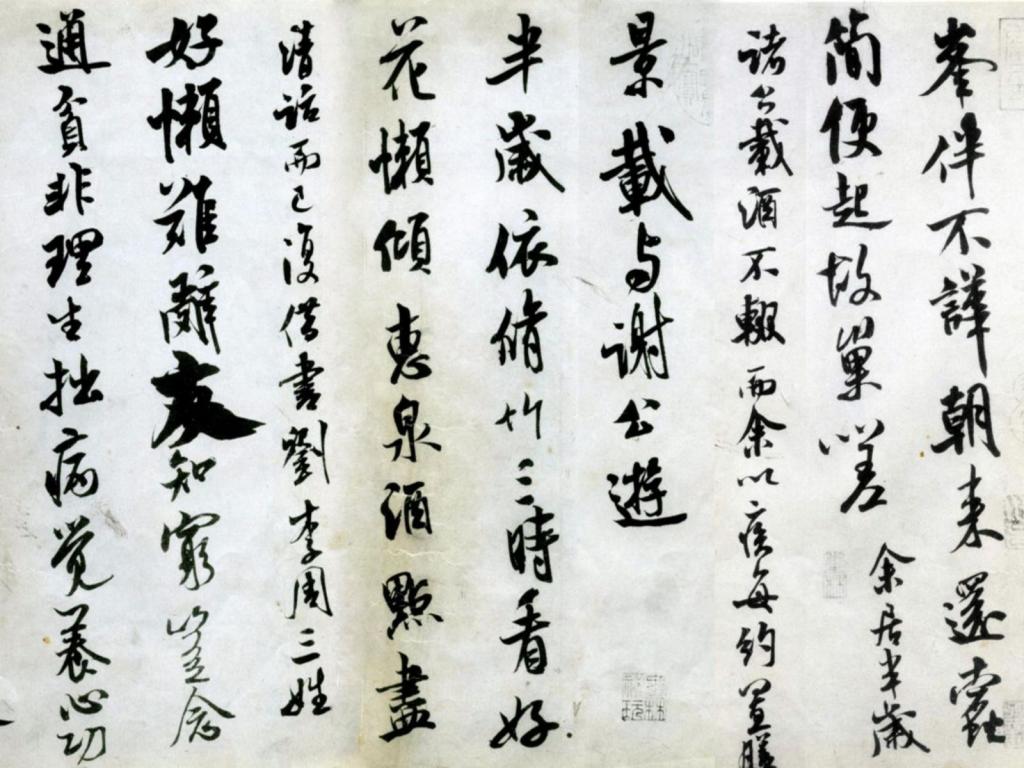 峯伴不譁朝来還蠹
簡便起故巢嗟
余居半歲
諸公載酒不輟而余以疾每約置膳
景載与謝公遊
半歲依脩竹三時看好
花懶傾惠泉酒點盡
清話而已復借書劉李周三姓
好懶難辭友知窮豈念
通貧非理生拙病覺養心功